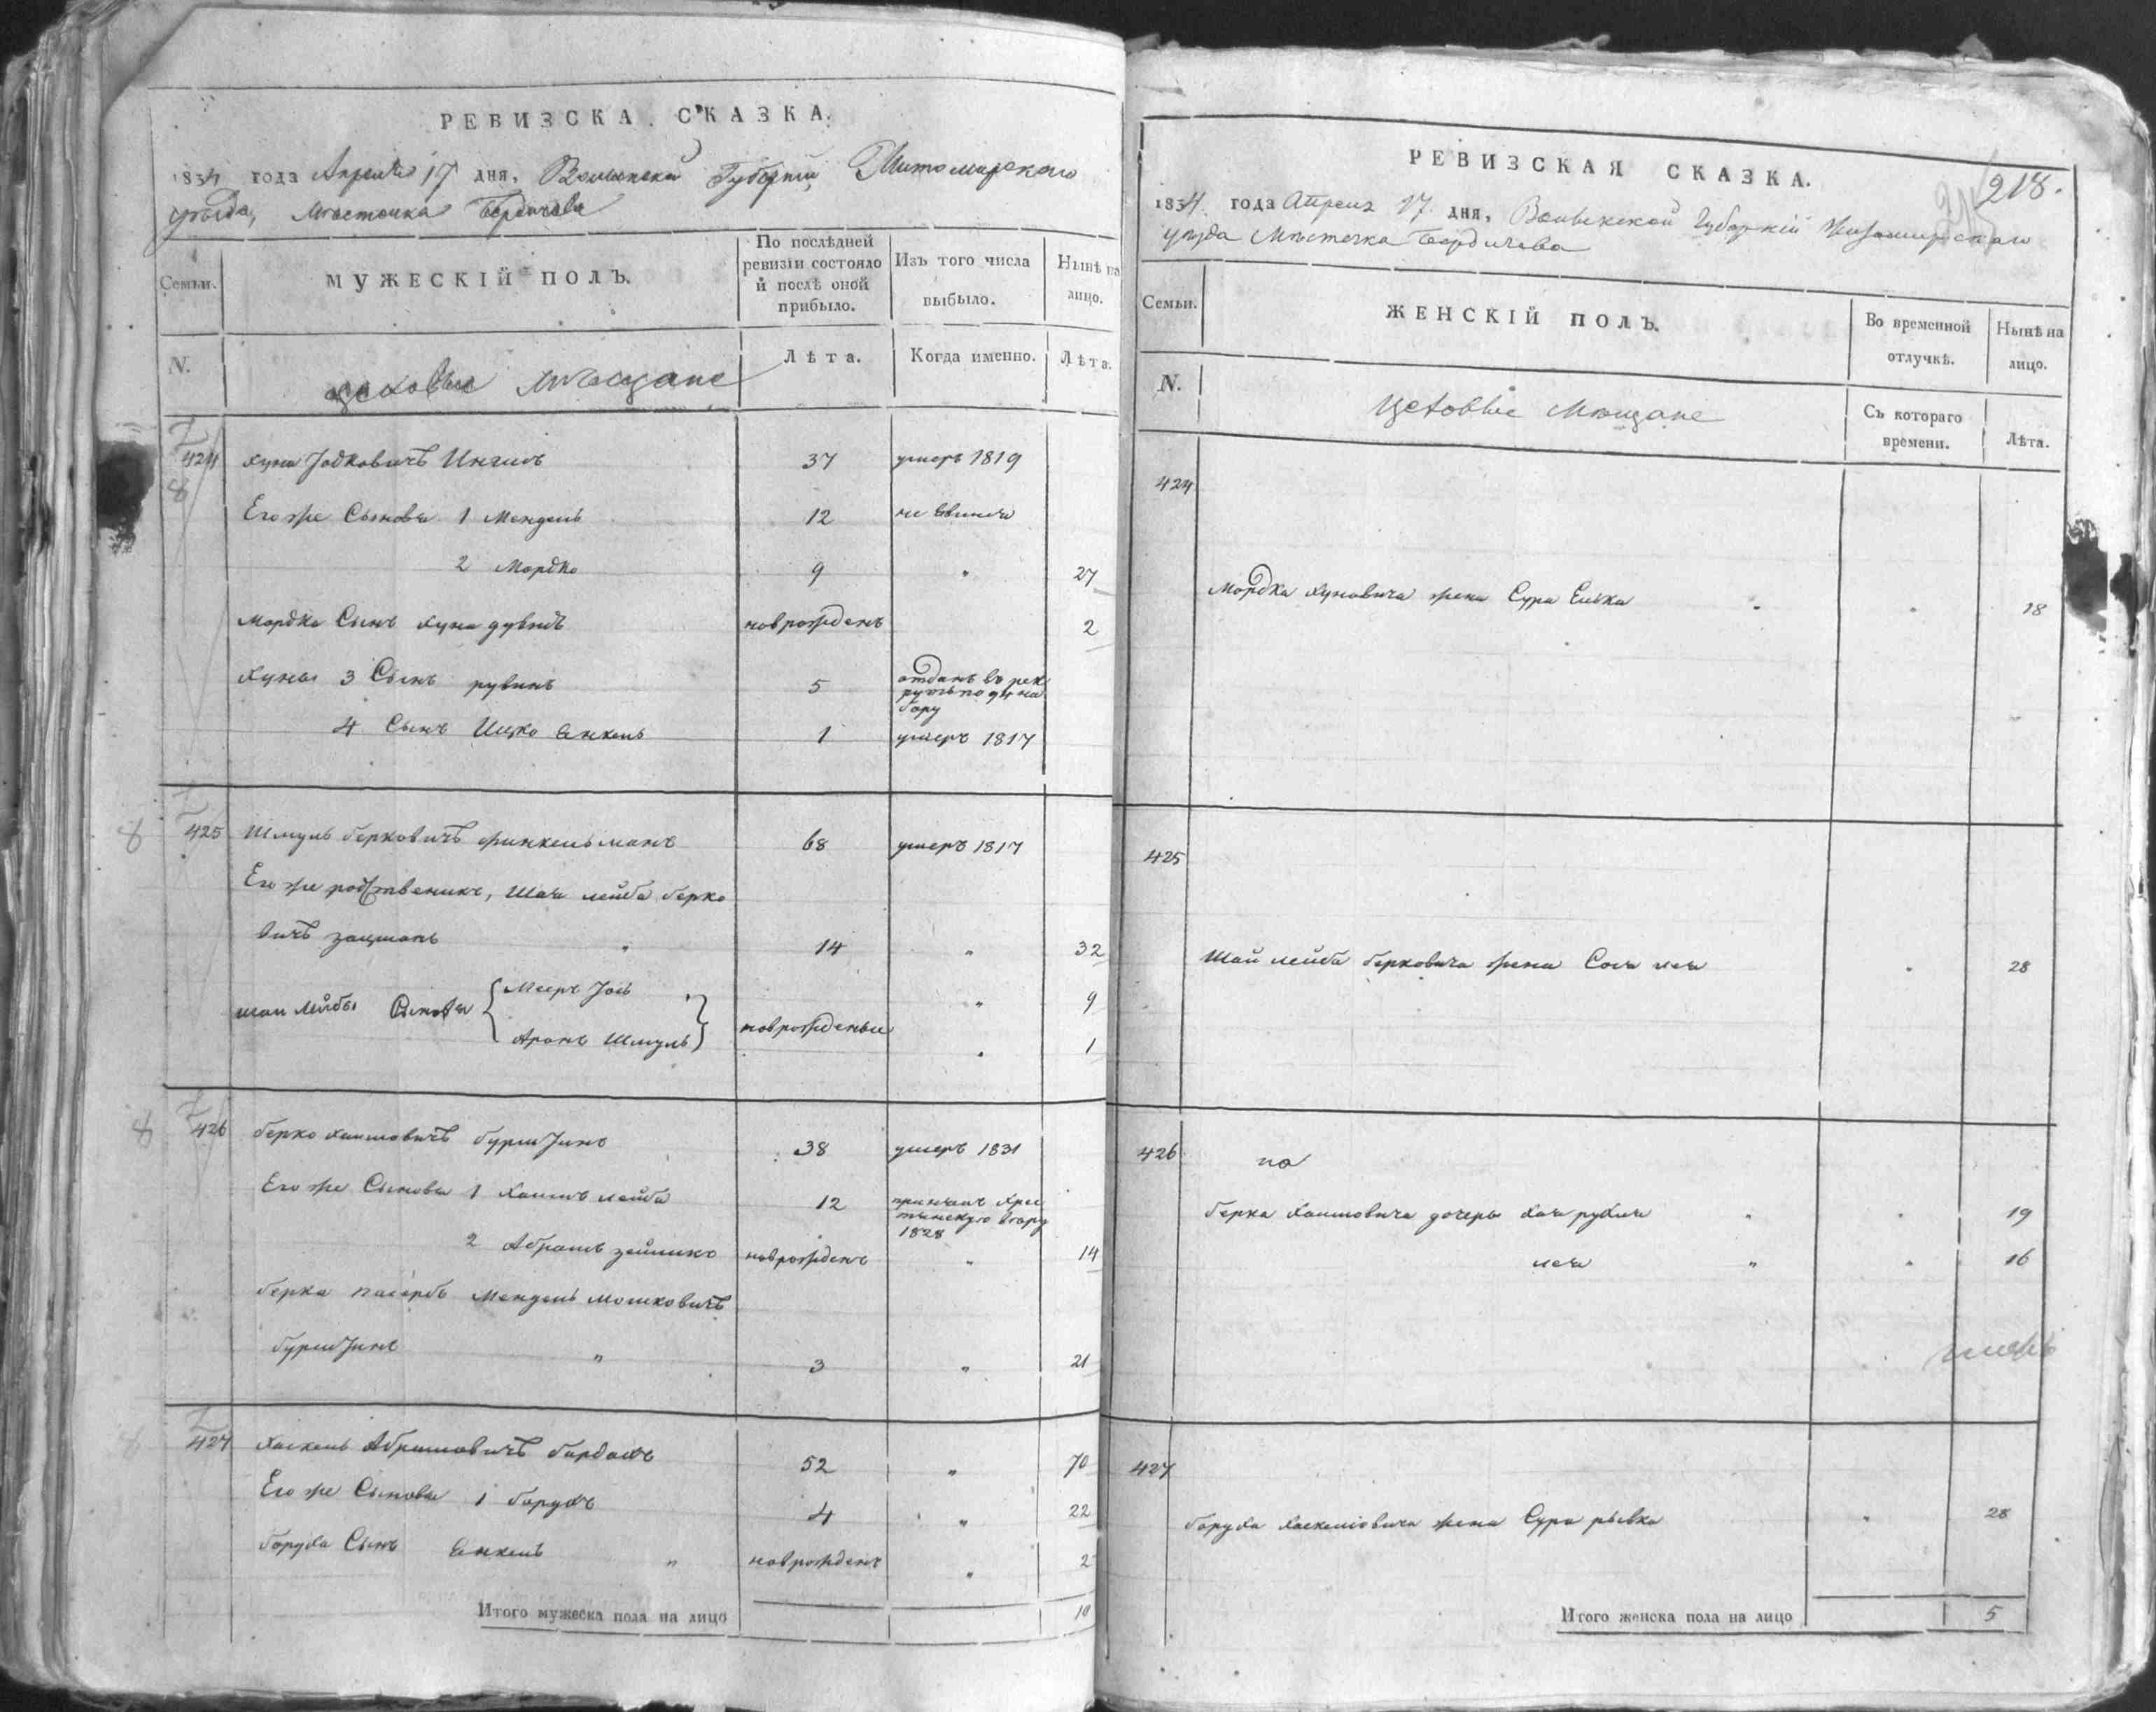 РЕВИЗСКА СКАЗКА.
1834 года Апреля 17 дня, Волынской Губернии, Житомирского
уѣзда, Мѣстечка Бердичева
Семьи.
МУЖЕСКІЙ ПОЛЪ.
По послѣдней
ревизіи состояло
и послѣ оной
прибыло.
Изъ того числа
выбыло.
Нынѣ на
лицо.
N.
цеховые мѣщане
Лѣта.
Когда именно.
Лѣта.
424 Хуна Іодковичъ 37 умеръ 1819
8
Его же Сыновья 1 Мендель 12
2 Мордко 9 " 27
Мордка Сынъ Хуна дувидъ новрожденъ 2
Хуны 3 Сынъ рувинъ 5 отданъ в рек
руты по на
бору
4 Сынъ Ицко Янкель 1 умеръ 1817
8 425 Шмуль берковичъ финкельманъ 68 умеръ 1817
Его же родственикъ, Шая лейба берко
вичъ зацманъ " 14 " 32
шаи Лейбы Сыновья Мееръ Іось " 9
Аронъ Шмуль новрожденые " 1
8 426 берко хаимовичъ 38 умеръ 1831
Его же Сыновья 1 Хаимъ лейба 12 принялъ Хрис
тиянскую веру
1828
2 Абрамъ зейлико новрожденъ " 14
берка пасербъ Мендель мошковичъ
" 3 " 21
8 427 Хаскель Абрамовичъ бардахъ 52 " 70
Его же Сыновья 1 барухъ 4 " 22
баруха Сынъ Янкель " новрожденъ " 2
Итого мужеска пола на лицо 10
РЕВИЗСКАЯ СКАЗКА.
218.
1834 года Апреля 17 дня, Волынской Губерніи Житомирскаго
уезда Мѣстечка Бердичева
Семьи.
ЖЕНСКІЙ ПОЛЪ.
Во временной
отлучкѣ.
Нынѣ на
лицо.
N.
Цеховые Мѣщане
Съ котораго
времени.
Лѣта.
424
Мордка Хуновича жена Сура Елька " 18
425
Шаи лейба берковича жена Сося лея " 28
426
берка Хаимовича дочеры Хая рухля " " 19
лея " " 16
427
баруха Хаскелiовича жена Сура рывка " 28
Итого женска пола на лицо 5